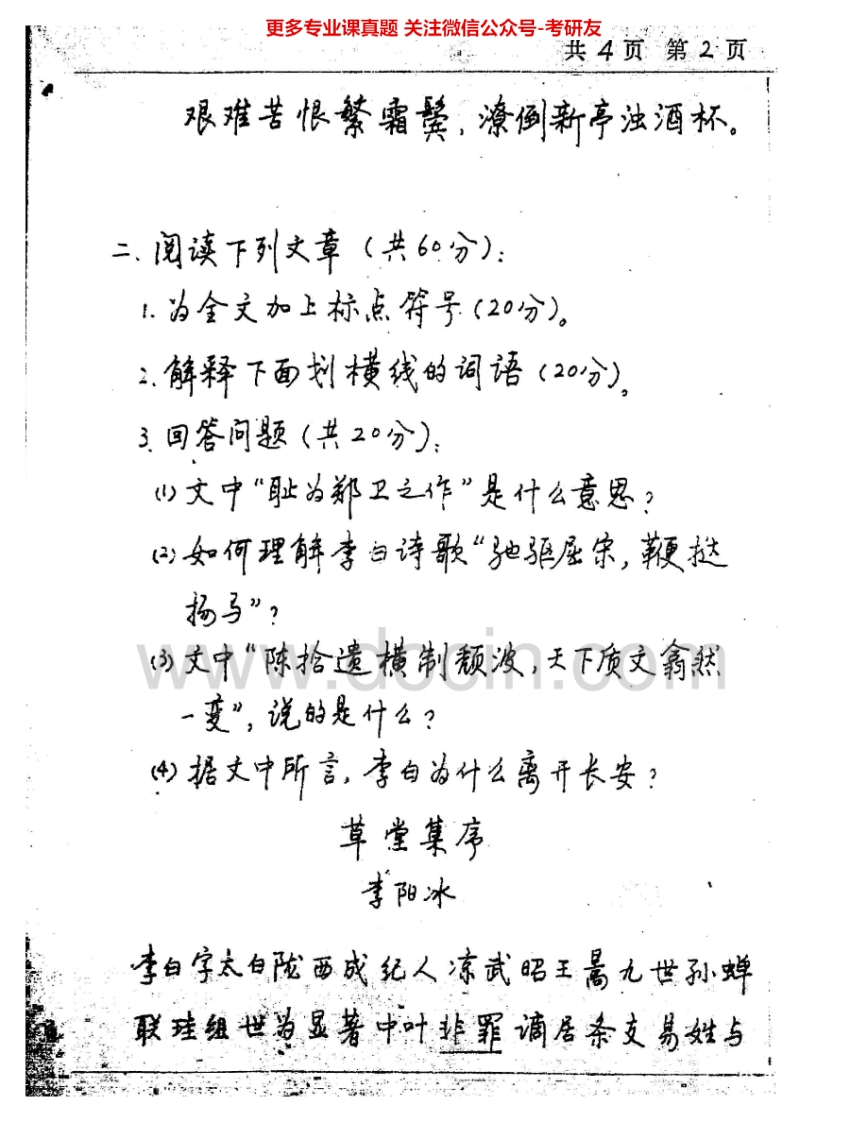 更多专业课真题 关注微信公众号-考研友
共4页 第2页
艰难苦恨繁霜鬓，潦倒新亭浊酒杯。
二、阅读下列文章（共60分）：
1. 为全文加上标点符号（20分）。
2. 解释下面划横线的词语（20分）。
3. 回答问题（共20分）：
(1) 文中“耻为郑卫之作”是什么意思？
(2) 如何理解李白诗歌“驰驱屈宋，鞭挞
扬马”？
www.docin.com
(3) 文中“陈拾遗横制颓波，天下质文翕然
一变”，说的是什么？
(4) 据文中所言，李白为什么离开长安？
草堂集序
李阳冰
李白字太白陇西成纪人凉武昭王暠九世孙蝉
联珪组世为显著中叶非罪谪居条支易姓与